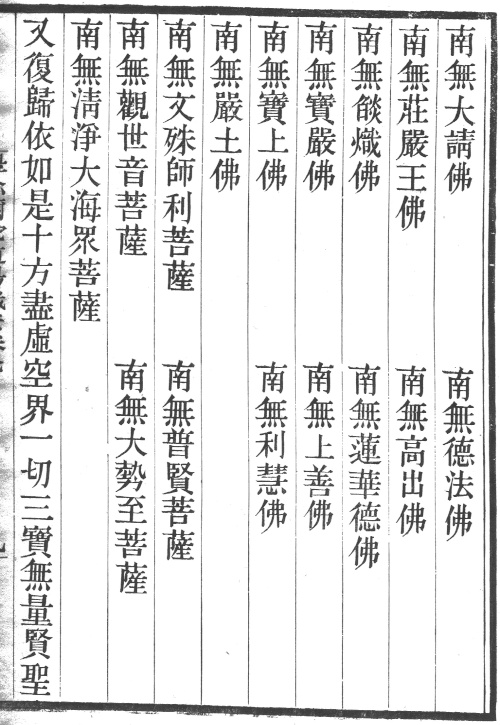 南無大請佛　南無德法佛
南無莊嚴王佛　南無高出佛
南無燄熾佛　南無蓮華德佛
南無寶嚴佛　南無上善佛
南無寶上佛　南無利慧佛
南無嚴土佛
南無文殊師利菩薩　南無普賢菩薩
南無觀世音菩薩　南無大勢至菩薩
南無清淨大海眾菩薩
又復歸依如是十方盡虛空界一切三寶無量賢聖